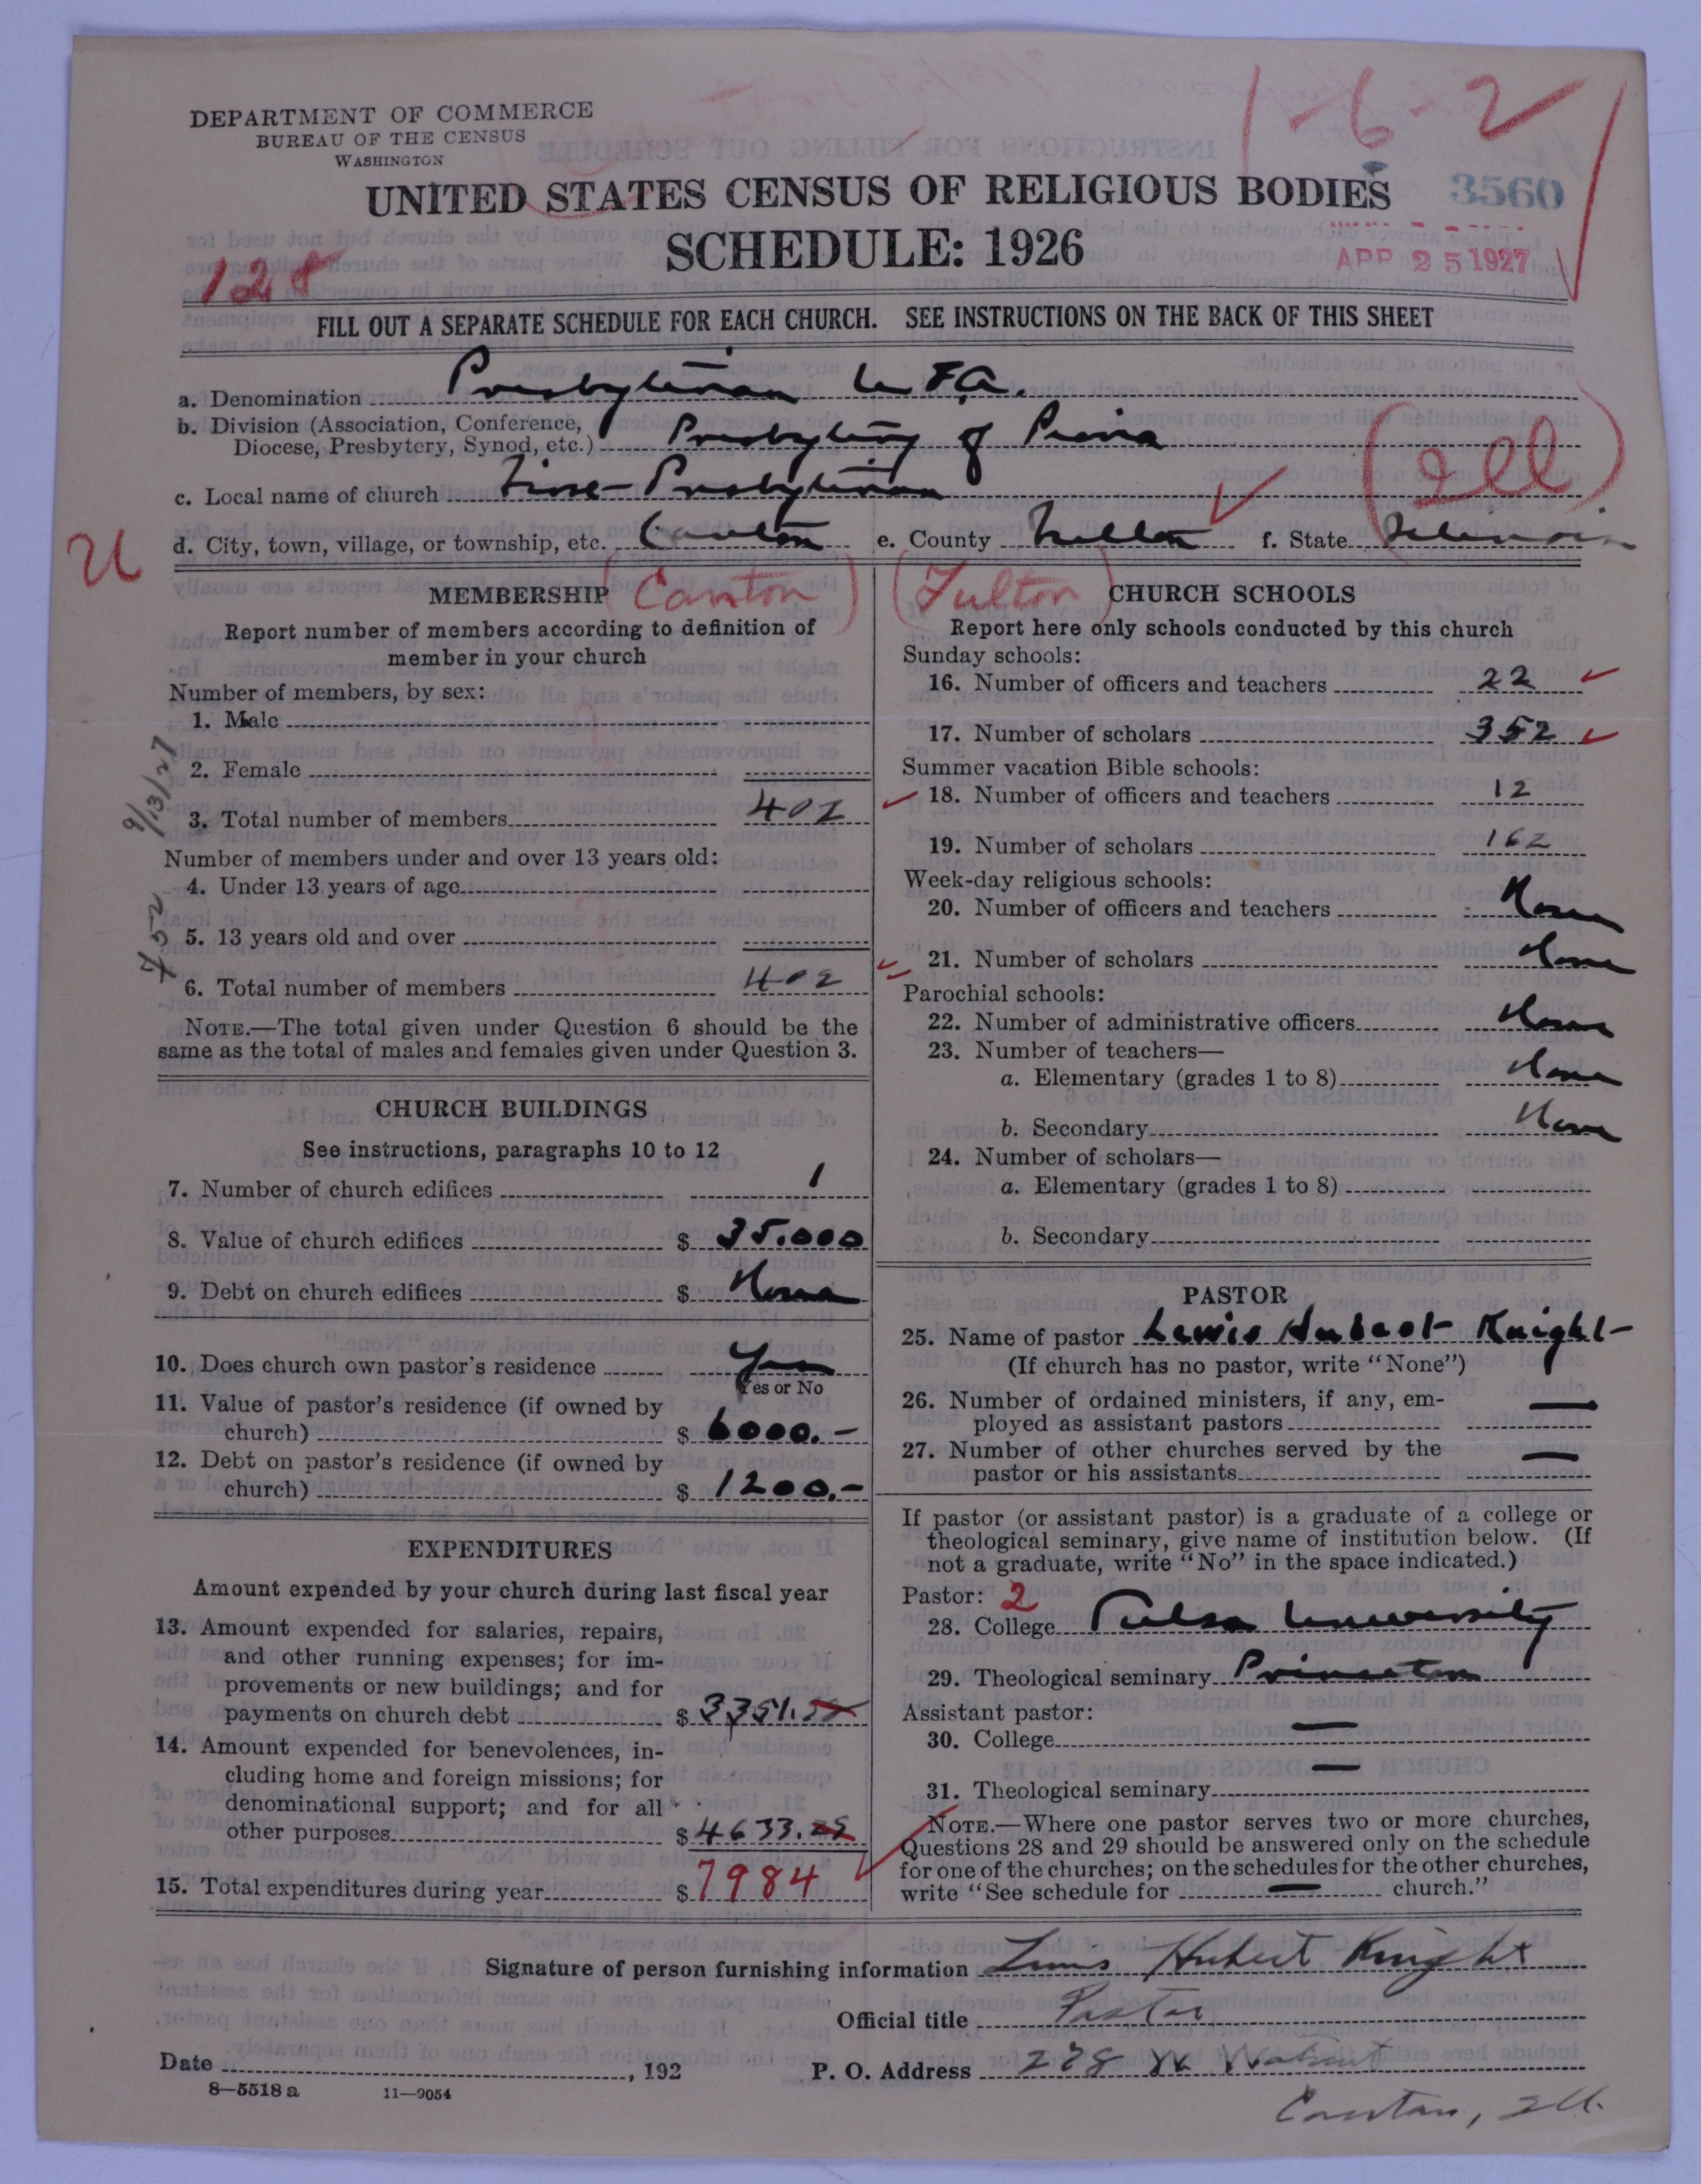 1-6-2
DEPARTMENT OF COMMERCE
BUREAU OF THE CENSUS
WASHINGTON
UNITED STATES CENSUS OF RELIGIOUS BODIES
3560
SCHEDULE: 1926
APR 25 1927
128
FILL OUT A SEPARATE SCHEDULE FOR EACH CHURCH. SEE INSTRUCTIONS ON THE BACK OF THIS SHEET
a. Denomination Presbyterian U.S.A.
b. Division (Association, Conference, Diocese, Presbytery, Synod, etc.) Presbytery of Peoria
(Ill)
c. Local name of church First Presbyterian
U
d. City, town, village, or township, etc. Canton e. County Fulton f. State Illinois
MEMBERSHIP (Canton)
Report number of members according to definition of
member in your church
Number of members, by sex:
1. Male
2. Female
3. Total number of members 402
Number of members under and over 13 years old:
4. Under 13 years of age
5. 13 years old and over
6. Total number of members 402
NOTE.—The total given under Question 6 should be the
same as the total of males and females given under Question 3.
9/13/27
CHURCH BUILDINGS
See instructions, paragraphs 10 to 12
7. Number of church edifices 1
8. Value of church edifices $ 35.000
9. Debt on church edifices $ None
10. Does church own pastor's residence Yes
Yes or No
11. Value of pastor's residence (if owned by
church) $ 6000.-
12. Debt on pastor's residence (if owned by
church) $ 1200.-
EXPENDITURES
Amount expended by your church during last fiscal year
13. Amount expended for salaries, repairs,
and other running expenses; for im-
provements or new buildings; and for
payments on church debt $ 3351.
14. Amount expended for benevolences, in-
cluding home and foreign missions; for
denominational support; and for all
other purposes $ 4633.25
15. Total expenditures during year $ 7984
(Fulton) CHURCH SCHOOLS
Report here only schools conducted by this church
Sunday schools:
16. Number of officers and teachers 22
17. Number of scholars 352
Summer vacation Bible schools:
18. Number of officers and teachers 12
19. Number of scholars 162
Week-day religious schools:
20. Number of officers and teachers None
21. Number of scholars None
Parochial schools:
22. Number of administrative officers None
23. Number of teachers—
a. Elementary (grades 1 to 8) None
b. Secondary None
24. Number of scholars—
a. Elementary (grades 1 to 8)
b. Secondary
PASTOR
25. Name of pastor Lewis Hubert Knight
(If church has no pastor, write "None")
26. Number of ordained ministers, if any, em-
ployed as assistant pastors —
27. Number of other churches served by the
pastor or his assistants —
If pastor (or assistant pastor) is a graduate of a college or
theological seminary, give name of institution below. (If
not a graduate, write "No" in the space indicated.)
Pastor: 2
28. College Tulsa University
29. Theological seminary Princeton
Assistant pastor:
30. College —
31. Theological seminary —
NOTE.—Where one pastor serves two or more churches,
Questions 28 and 29 should be answered only on the schedule
for one of the churches; on the schedules for the other churches,
write "See schedule for — church."
Signature of person furnishing information Lewis Hubert Knight
Official title Pastor
Date , 192 P. O. Address 278 W. Walnut
8—5518 a 11—9054
Canton, Ill.